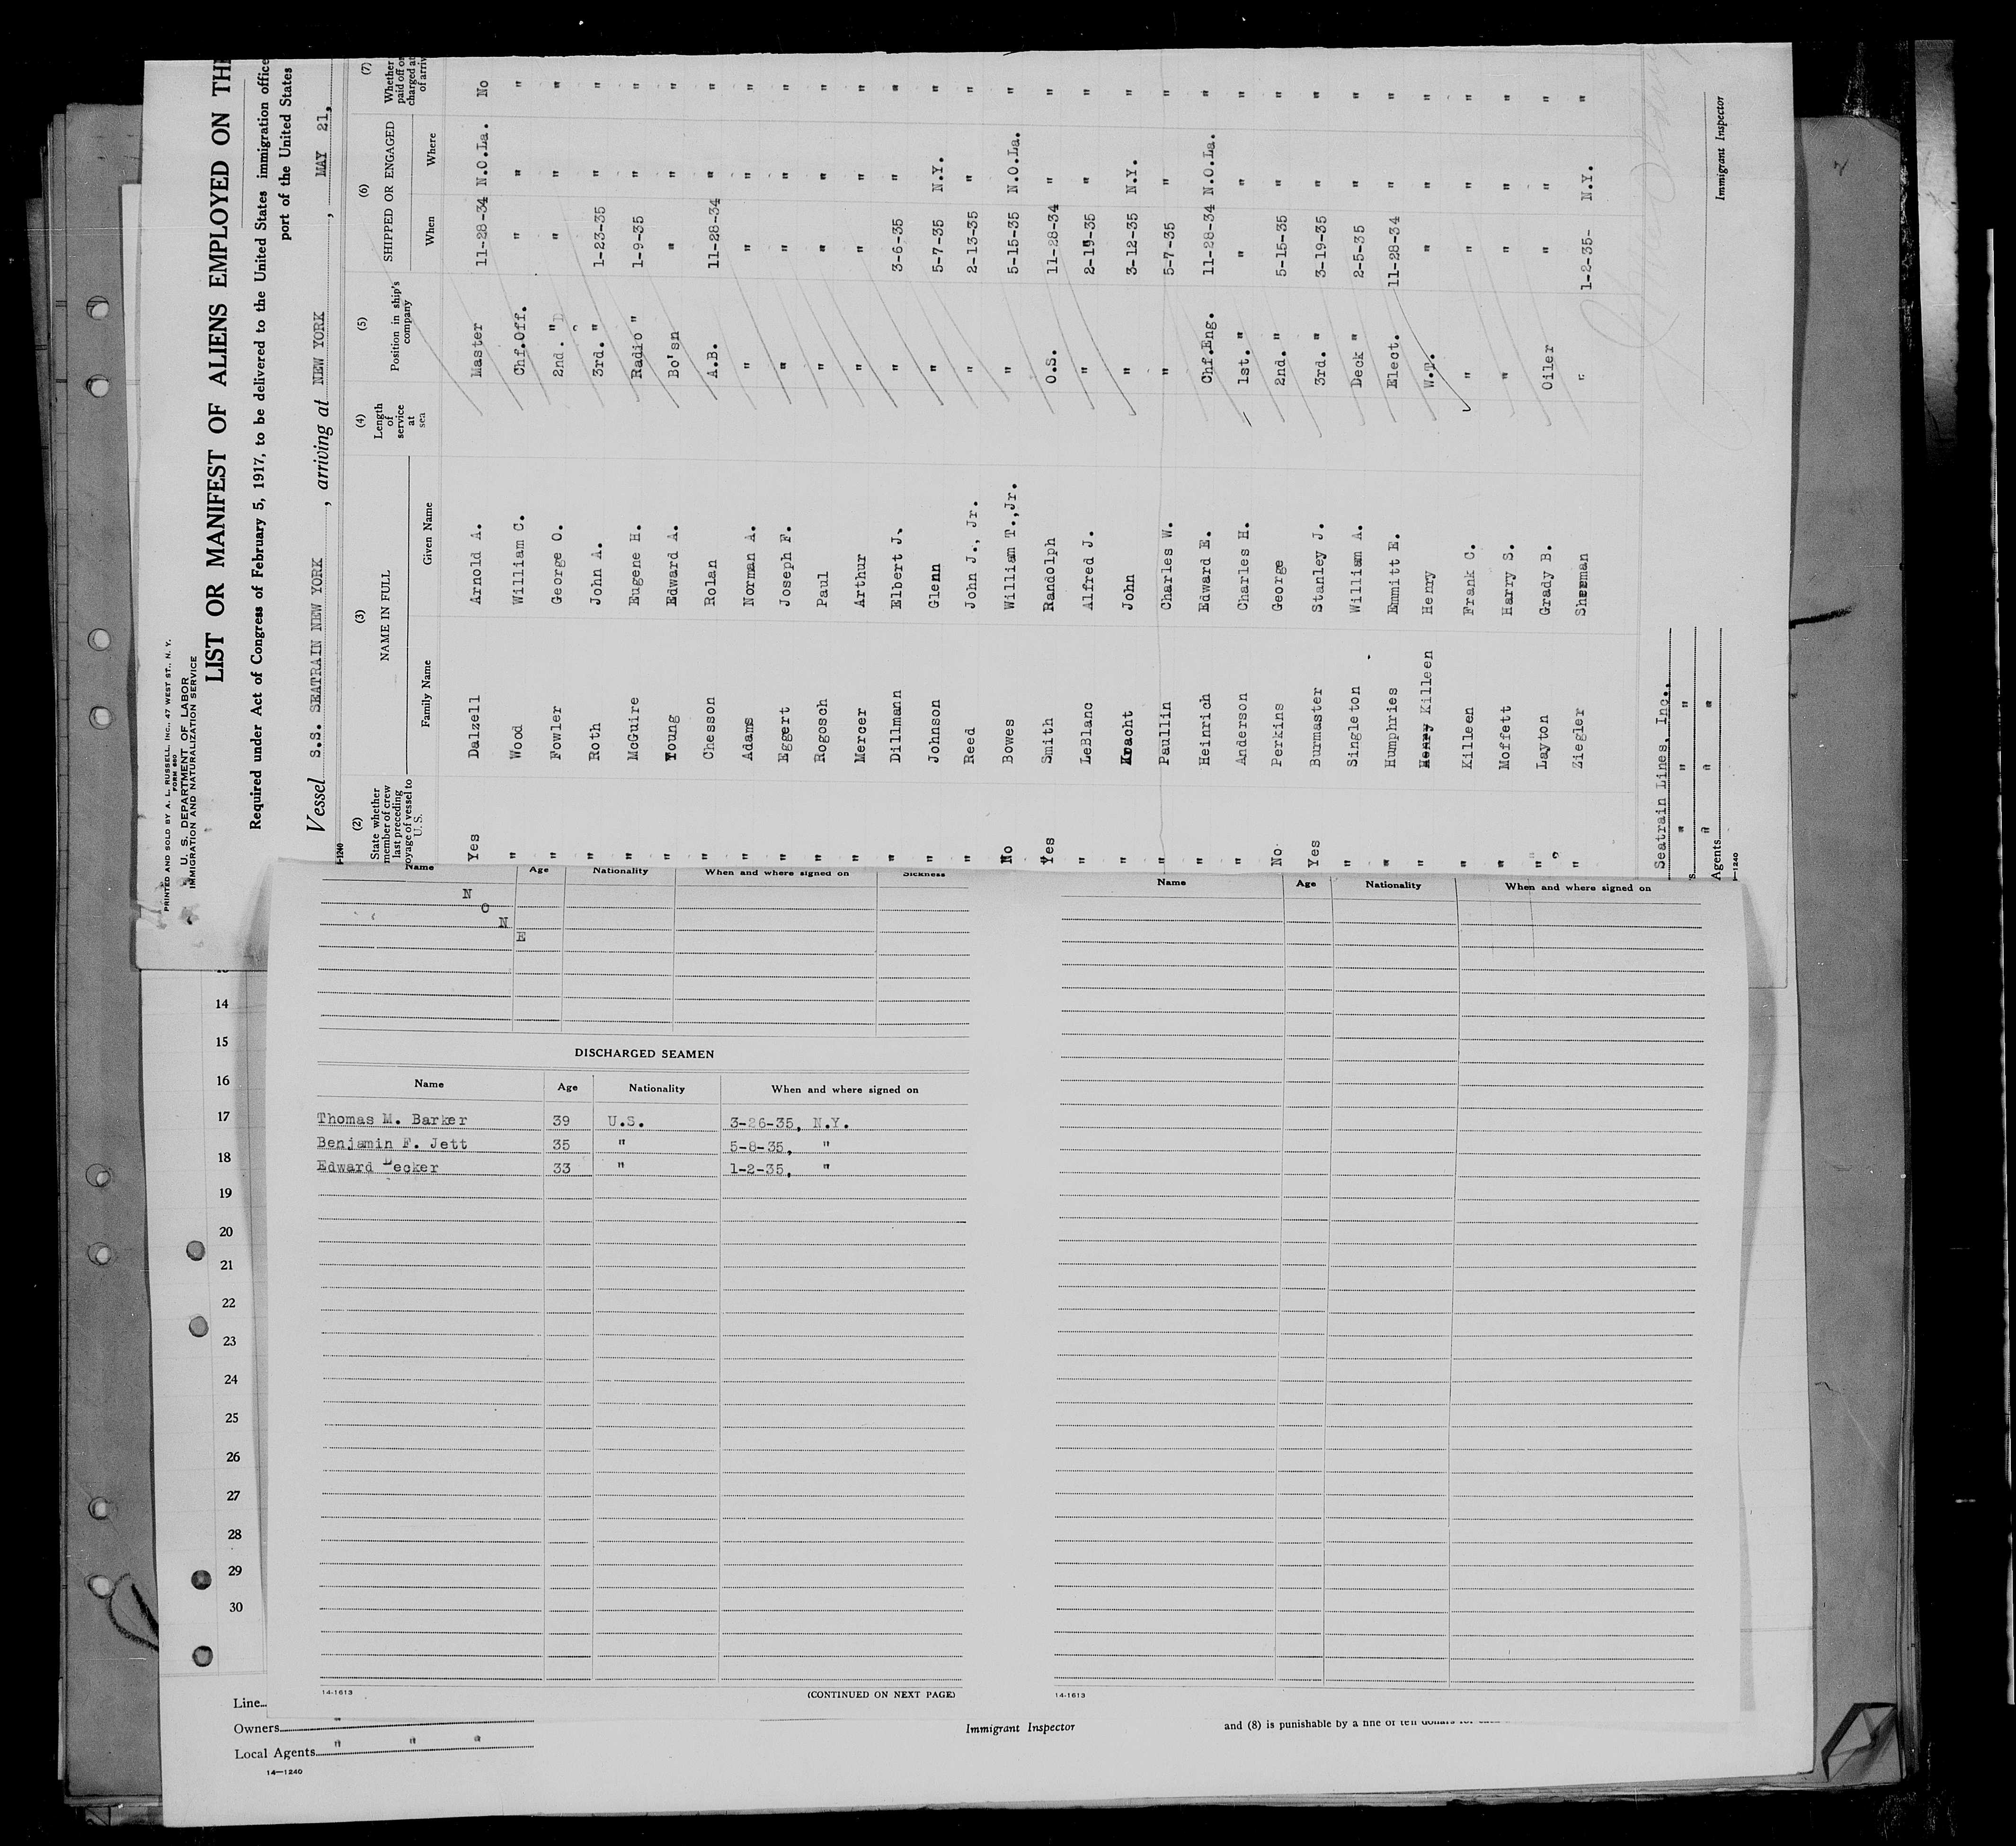 PRINTED AND SOLD BY A. L. RUSSELL, INC., 47 WEST ST., N. Y.
FORM 680
U. S. DEPARTMENT OF LABOR
IMMIGRATION AND NATURALIZATION SERVICE
LIST OR MANIFEST OF ALIENS EMPLOYED ON
Required under Act of Congress of February 5, 1917, to be delivered to the United States immigration
port of the United States
Vessel S.S. SEATRAIN NEW YORK, arriving at NEW YORK, MAY 21,
(2) State whether member of crew last preceding voyage of vessel to U. S.
(3) NAME IN FULL
Family Name Given Name
(4) Length of service at sea
(5) Position in ship's company
(6) SHIPPED OR ENGAGED
When Where
(7) Whether paid off or
Yes Dalzell Arnold A. Master 11-28-34 N.O.La. No
" Wood William C. Chf.Off. " " "
" Fowler George O. 2nd. " " " "
" Roth John A. 3rd. " 1-23-35 " "
" McGuire Eugene H. Radio " 1-9-35 " "
" Young Edward A. Bo'sn " " "
" Chesson Rolan A.B. 11-28-34 " "
" Adams Norman A. " " " "
" Eggert Joseph F. " " " "
" Rogosch Paul " " " "
" Mercer Arthur " " " "
" Dillmann Elbert J. " 3-6-35 " "
" Johnson Glenn " 5-7-35 N.Y. "
" Reed John J., Jr. " 2-13-35 " "
No Bowes William T.,Jr. " 5-15-35 N.O.La. "
Yes Smith Randolph O.S. 11-28-34 " "
" LeBlanc Alfred J. " 2-19-35 " "
" Kracht John " 3-12-35 N.Y. "
" Paullin Charles W. " 5-7-35 " "
" Heinrich Edward E. Chf.Eng. 11-28-34 N.O.La. "
" Anderson Charles H. 1st. " " " "
No Perkins George 2nd. " 5-15-35 " "
Yes Burmaster Stanley J. 3rd. " 3-19-35 " "
" Singleton William A. Deck " 2-5-35 " "
" Humphries Emmitt E. Elect. 11-28-34 " "
" Henry Killeen Henry W.T. " " "
" Killeen Frank C. " " " "
" Moffett Harry S. " " " "
" Layton Grady B. Oiler " " "
" Ziegler Sherman " 1-2-35- N.Y. "
Seatrain Lines, Inc.,
" " "
Agents " " "
1240
Immigrant Inspector
Name Age Nationality When and where signed on Sickness
N
O
N
E
DISCHARGED SEAMEN
Name Age Nationality When and where signed on
Thomas M. Barker 39 U.S. 3-26-35, N.Y.
Benjamin F. Jett 35 " 5-8-35, "
Edward Decker 33 " 1-2-35, "
14-1613 (CONTINUED ON NEXT PAGE)
Name Age Nationality When and where signed on
14-1613
14
15
16
17
18
19
20
21
22
23
24
25
26
27
28
29
30
Line
Owners "
Local Agents " " "
14—1240
Immigrant Inspector
and (8) is punishable by a fine of ten dollars